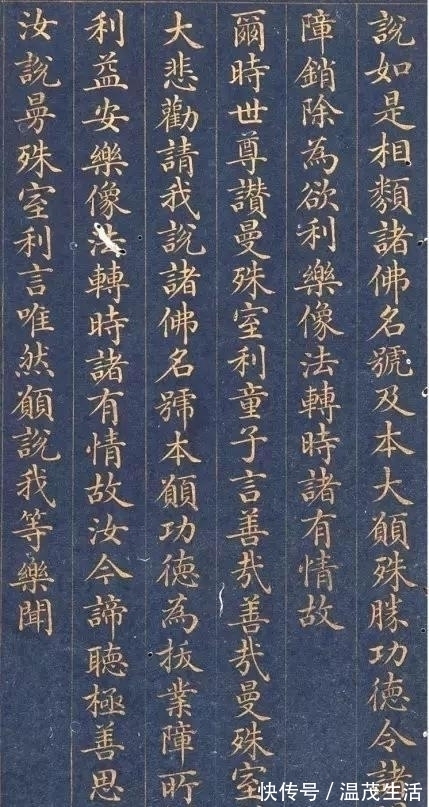 說如是相類諸佛名號及本大願殊勝功德令諸
障銷除為欲利樂像法轉時諸有情故
爾時世尊讚曼殊室利童子言善哉善哉曼殊室
大悲勸請我說諸佛名號本願功德為拔業障所
利益安樂像法轉時諸有情故汝今諦聽極善思
汝說曼殊室利言唯然願說我等樂聞
快传号/温茂生活